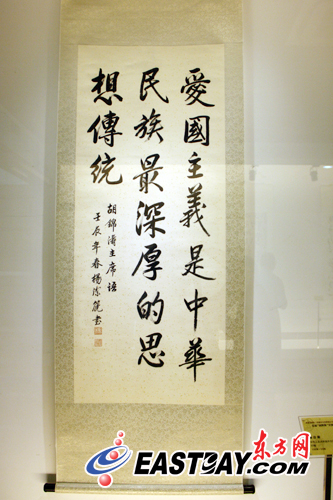 愛國主義是中華
民族最深厚的思
想傳統
胡錦濤主席語
壬辰年春楊崇範書
东方网
EASTDAY.COM